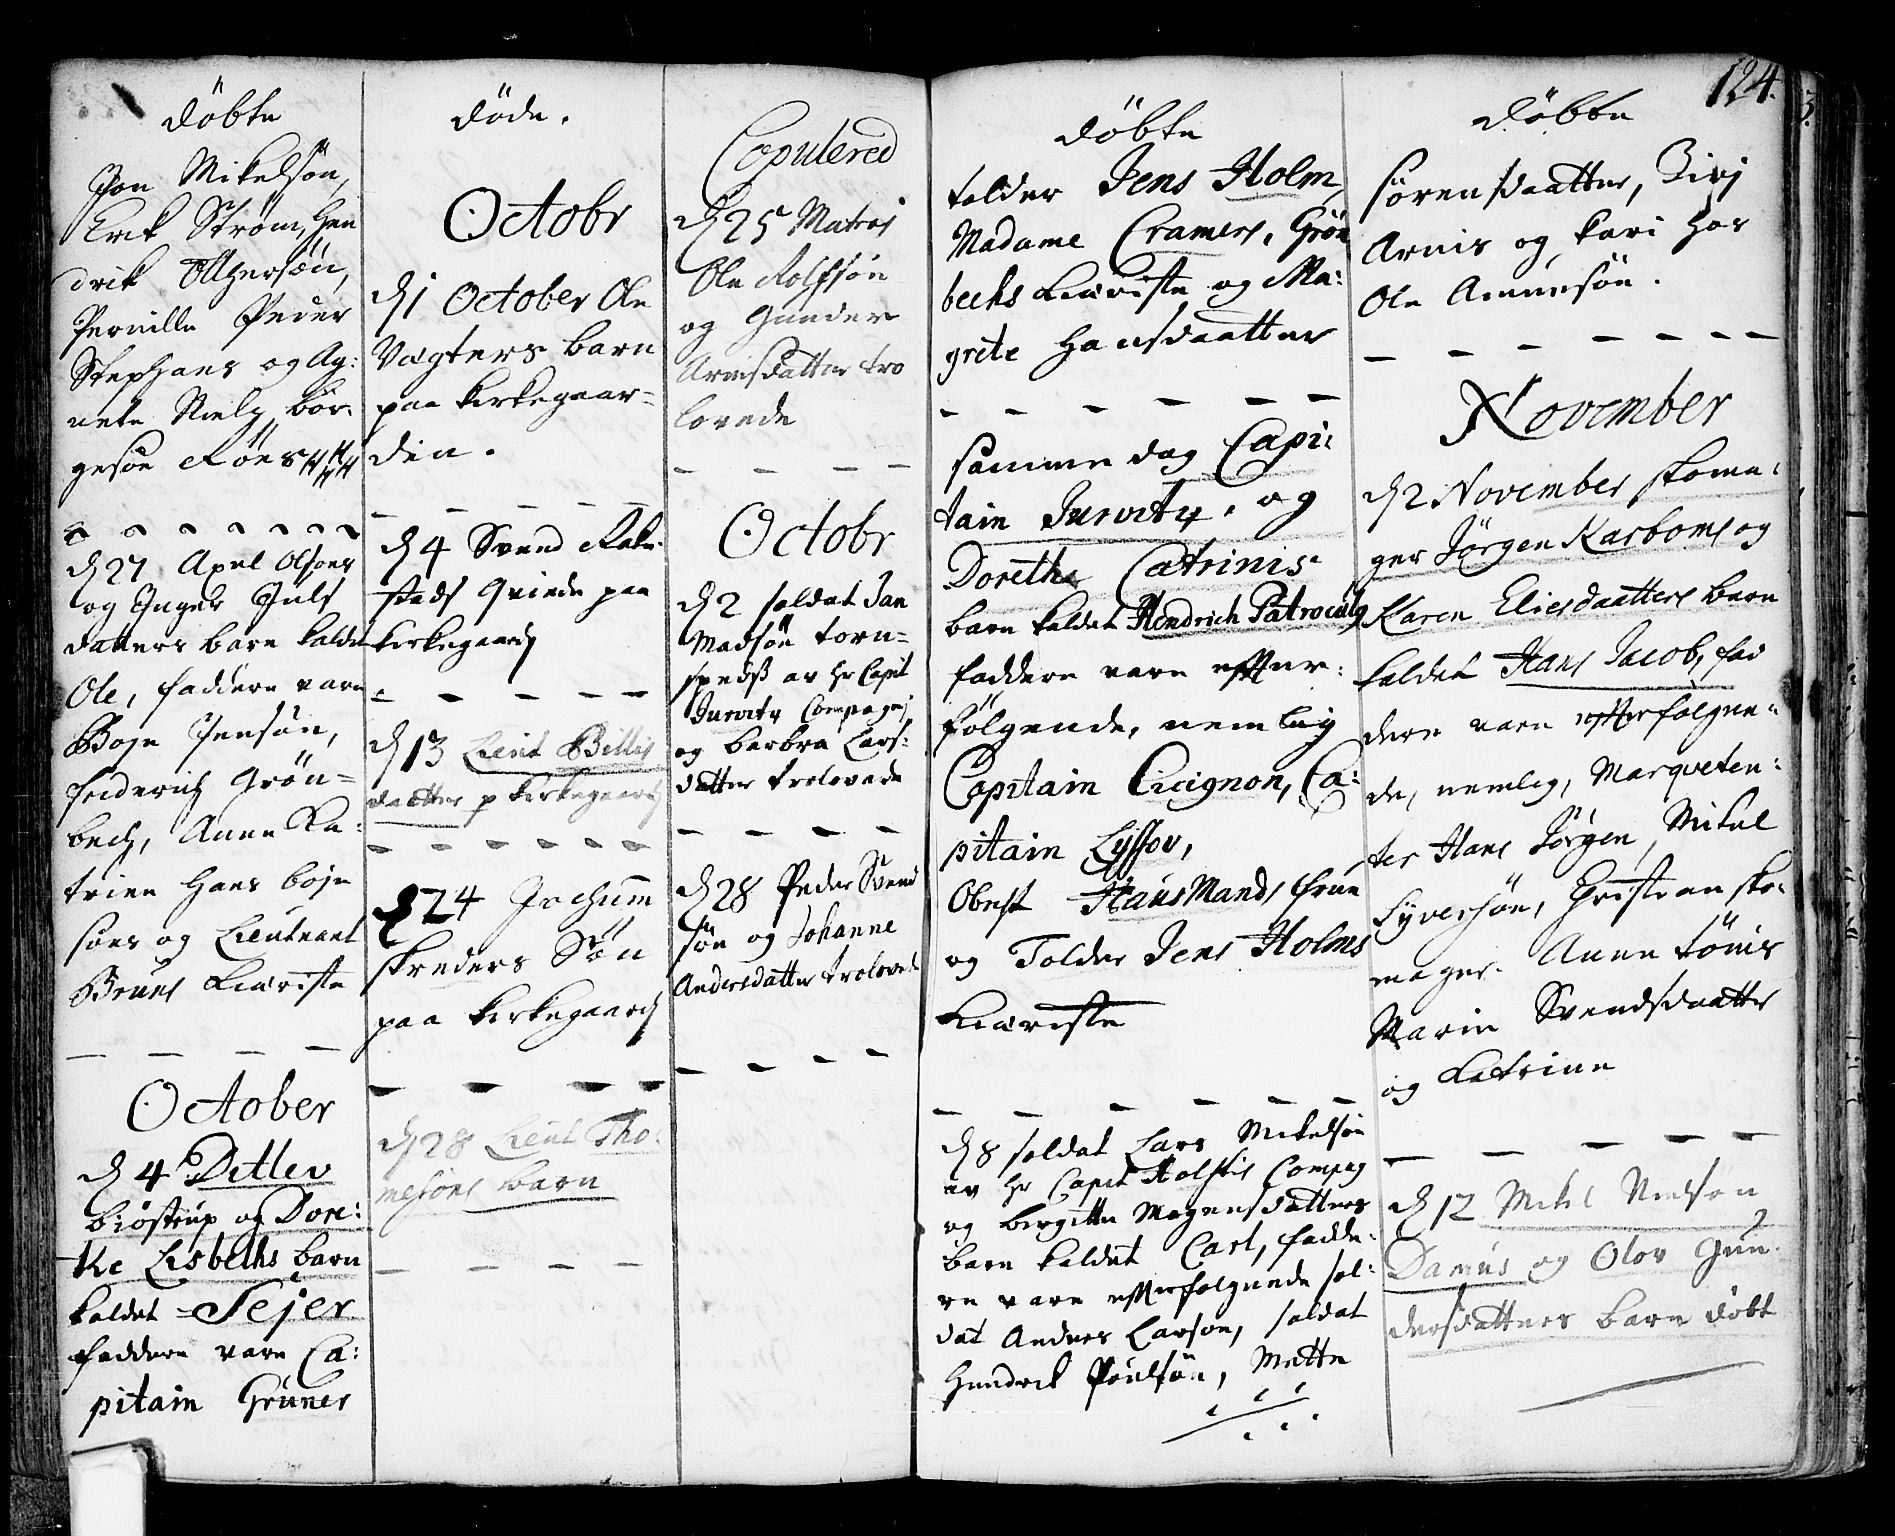 döbte
Jon Mikelsön,
Erik Ström, Hen
drik Ottersön,
Pernille Peder
Stephans og Ag:
nete Niels, bör:
gesön Röers
d 27 Axel Olsons
og Inger Juls
datters barn kaldet
Ole, faddere vare
Boje Jensön,
friderich Grön=
bech, Anne Ka:
trine Hans boje
sons og Lieutnant
Bruns Kiæriste
October
d 4 Ditlev
biöstrup og Dore:
the Lisbeths barn
kaldet Sejer
faddere vare Ca:
pitain Grüner
döde.
Octobr
d 1 October Ole
Vægters barn
paa kirkegaar=
den.
d 4 Svend
stads Qvinde paa
kirkegaard
d 13 Lieut Billis
daatter p kirkegaard
d 24 Jochum
skreders Sön
paa kirkegaard
d 28 Lieut Tho:
mesöns barn
Copulered
d 25 Matros
Ole Rolfsön
og Gunder
Arnisdatter tro
lovede
Octobr
d 2 soldat Jan
Madsön torn=
spedß av Hr Capit
Jurvity Compagnj
og barbra Lars:
datter trolovede
d 28 Peder Svend
sön og Johanne
Andersdatter trolovede
124.
döbte
tolder Jens Holm,
Madame Cramers, Grön
bechs Kiæriste og Ma:
grete Hansdaatter
samme dag Capi:
tain Jurvity, og
Dorethe Catrinis
barn kaldet Hendrich Patroculg
faddere vare efter:
fölgende, nemlig
Capitain Cicignon, Ca:
pitain Lyssov,
Obest Hausmands frue
og Tolder Jens Holms
Kiæriste
d 8 soldat Lars Mikelsön
av Hr Capit Holstis Compag
og birgitte Mogensdatters
barn kaldet Carl, fadde:
re vare efterfolgende sol:
dat Anders Larson, soldat
Hendrick Poulsön, Mette
döbte
sörensdaatter, Birj
Arnis og kari Hos
Ole Amunsön.
November
d 2 November skoma:
ger Jörgen Karboms og
Karen Eliesdaatters barn
kaldet Hans Jacob, fad
dere vare efterfolgen=
de, nemlig, Marqveten:
ter Hans Jörgen, Mikel
Syversön, Christian sko:
mager. Anne tönis
Marie Svendsdaatter
og Katrine
d 12 Mikel Nielson
Damus og Olov Gun:
dersdatters barn döbt